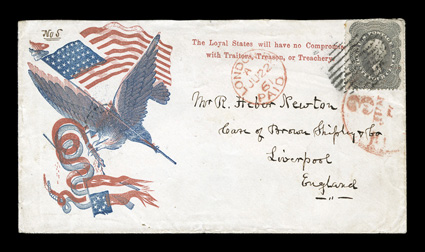 No 5
The Loyal States will have no Compromise
with Traitors, Treason, or Treachery.
LONDON
JU 22
PAID
Mr R. Heber Newton
Care of Brown Shipley & Co
Liverpool
England